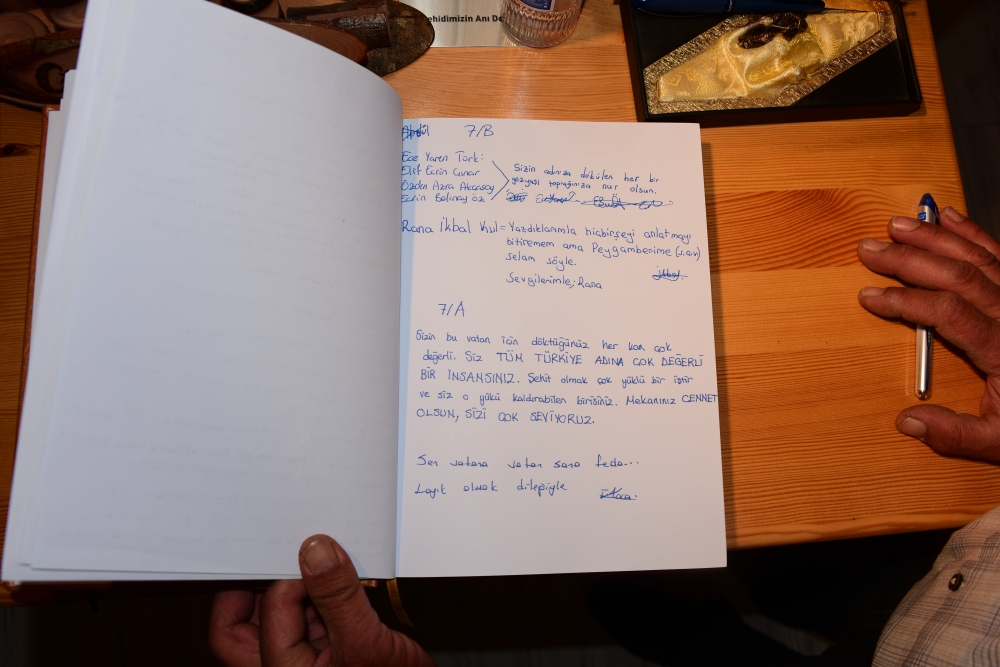 ehidimizin Anı De
7/B
Ece Yaren Türk:
Elif Ecrin Çınar
Özden Azra Akçasoy
Ecrin Belinay öz
Sizin adınıza dökülen her bir
gözyaşı toprağınıza nur olsun.
Rana İkbal Kul = Yazdıklarımla hiçbirşeyi anlatmayı
bitiremem ama Peygamberime (s.a.v)
selam söyle.
Sevgilerimle; Rana
7/A
Sizin bu vatan için döktüğünüz her kan çok
değerli. Siz TÜM TÜRKİYE ADINA ÇOK DEĞERLİ
BİR İNSANSINIZ. Şehit olmak çok yüklü bir iştir
ve siz o yükü kaldırabilen birisiniz. Mekanınız CENNET
OLSUN, SİZİ ÇOK SEVİYORUZ.
Sen vatana vatan sana feda...
Layık olmak dileğiyle